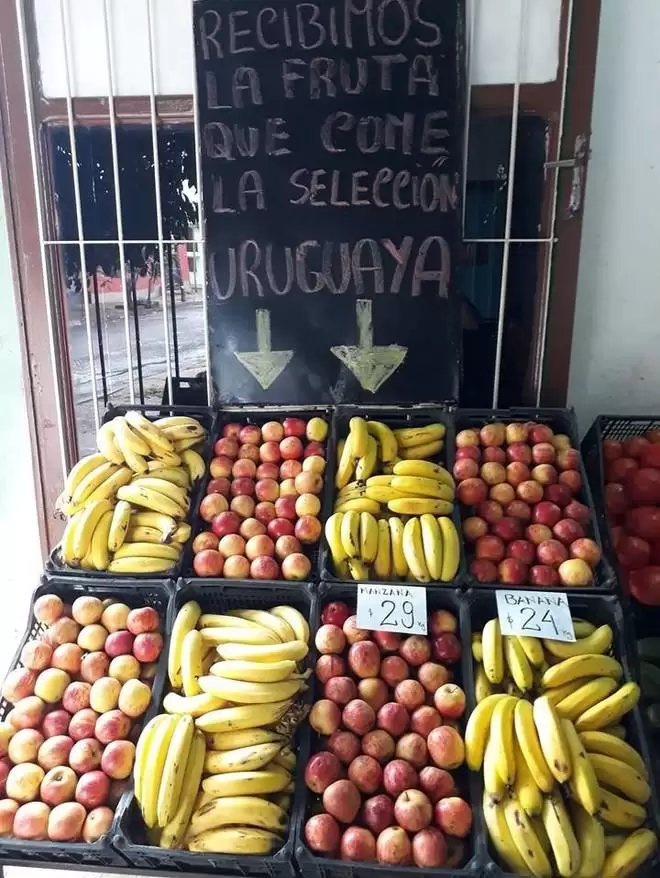 RECIBIMOS
LA FRUTA
QUE COME
LA SELECCIÓN
URUGUAYA
MANZANA
$ 29 KG
BANANA
$ 24 KG